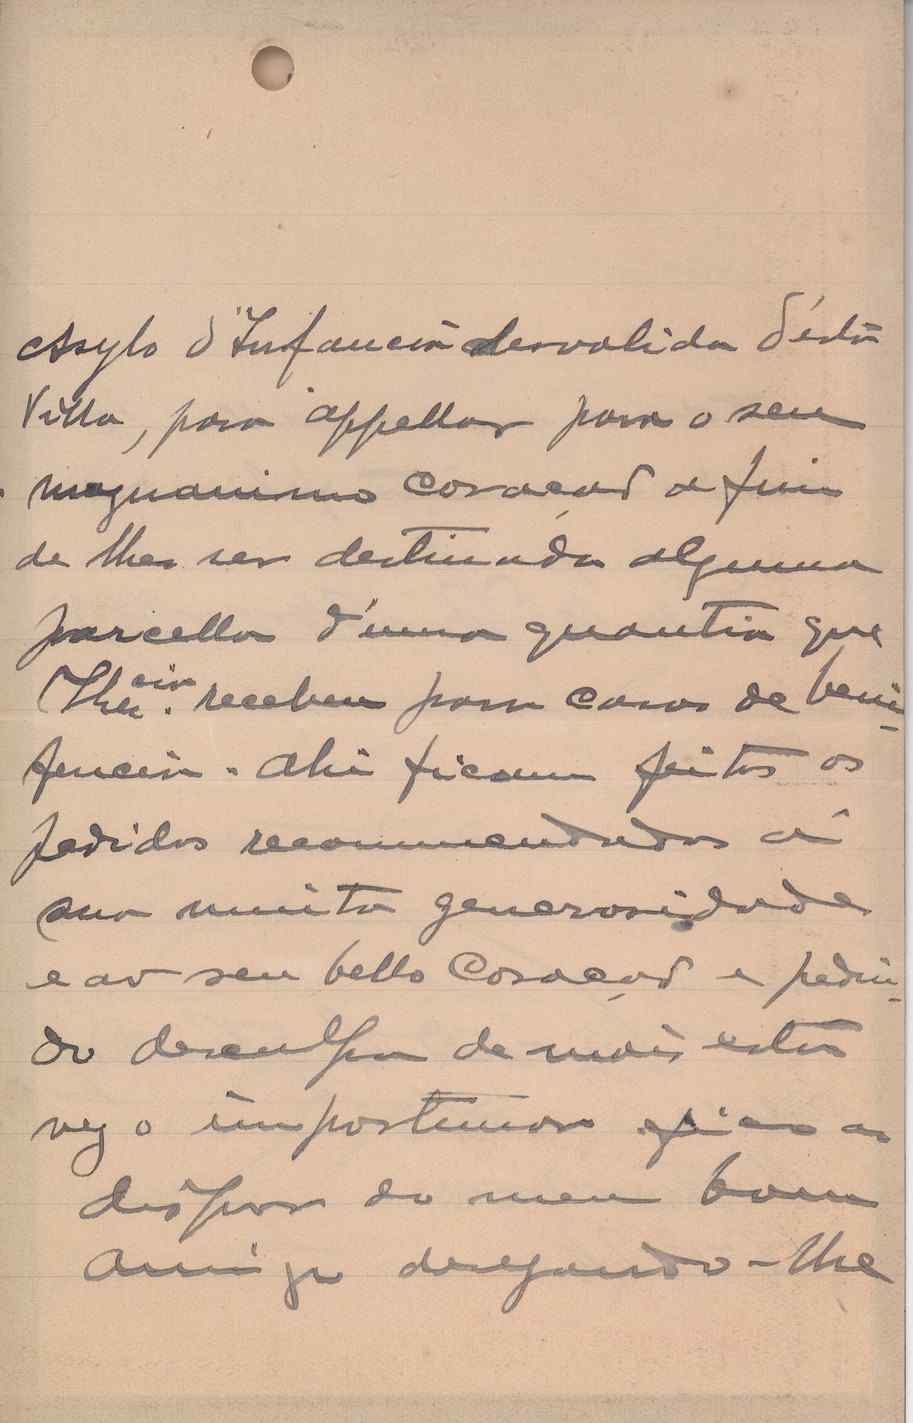 Asylo d'Infancia desvalida d'ésta
Villa, para appellar para o seu
magnanimo coração a fim
de lhes ser destinada alguma
parcella d'uma quantia que
receben para casos de beni-
ficencia. Ahi ficam feitos os
pedidos recommendados á
sua muita generosidade
e ao seu bello Coração e pedin-
do desculpa de mais esta
vez o importunar fico ao
dispor do meu bom
amigo desejando-lhe